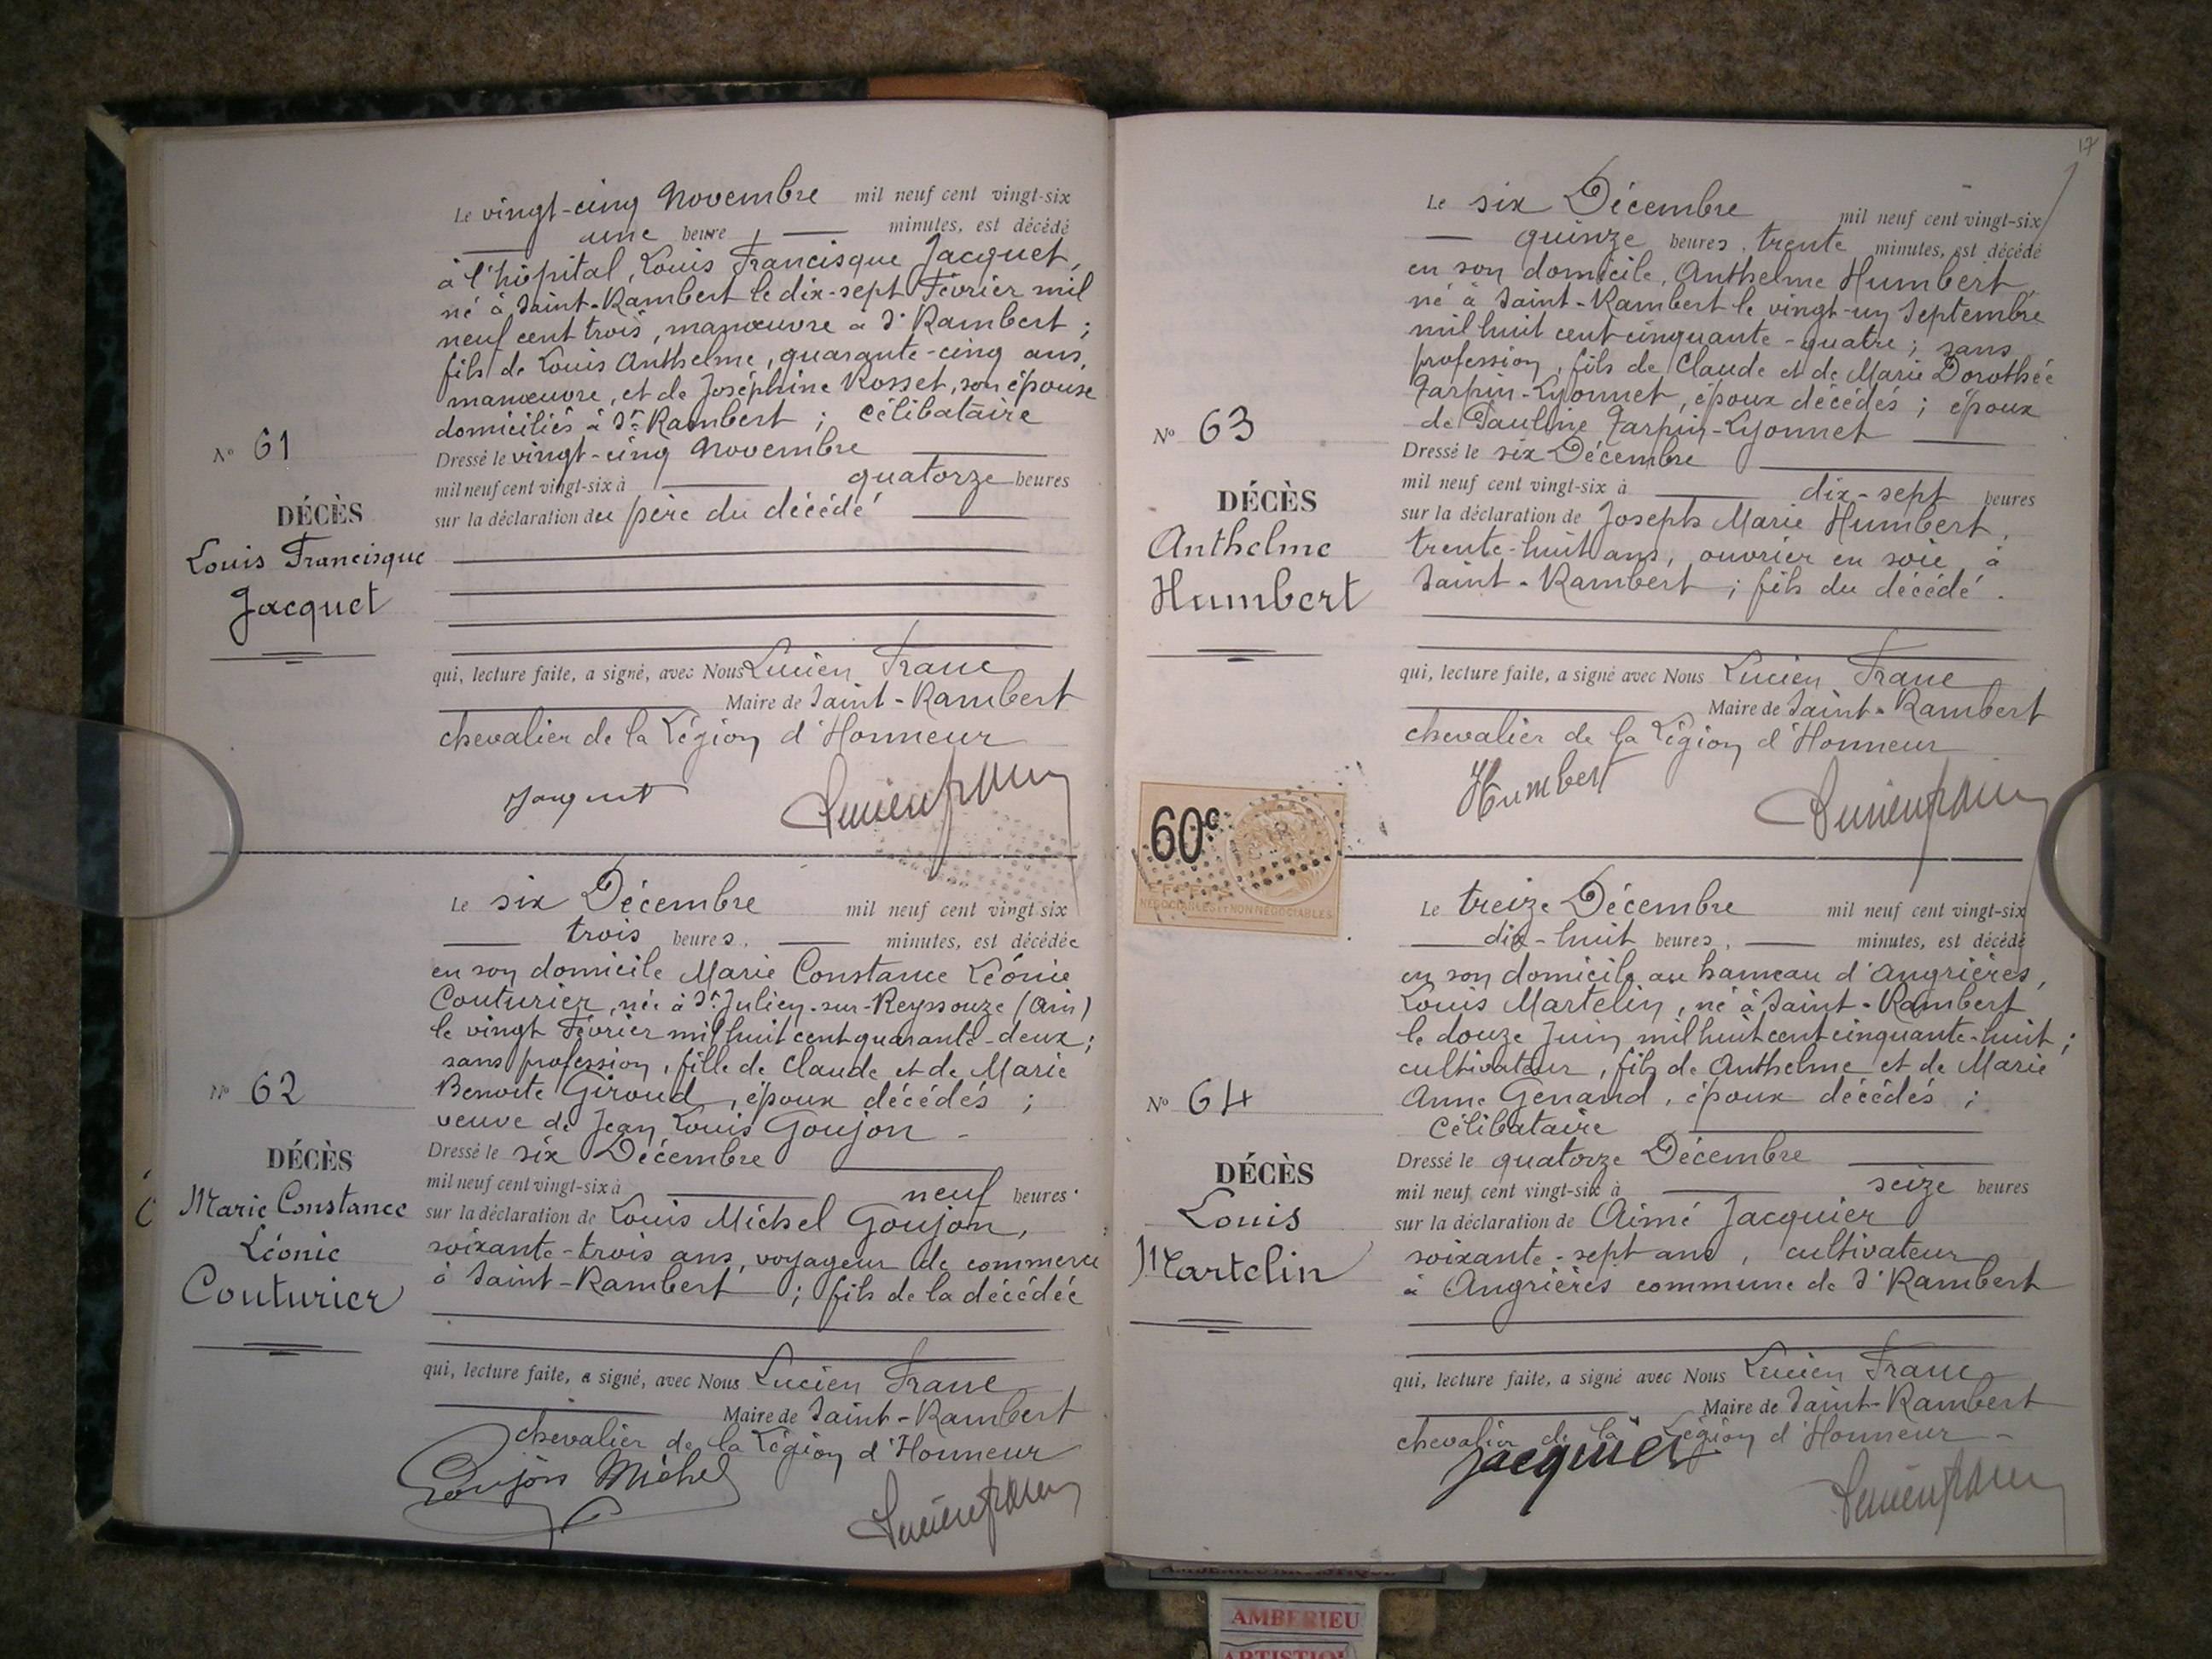 N° 61
DÉCÈS
Louis Francisque
Jacquet
Le vingt-cinq Novembre mil neuf cent vingt-six
une heure, minutes, est décédé
à l'hôpital, Louis Francisque Jacquet,
né à Saint-Rambert le dix-sept Février mil
neuf cent trois, manœuvre à St Rambert ;
fils de Louis Anthelme, quarante-cinq ans,
manœuvre, et de Joséphine Rosset, son épouse
domiciliés à St Rambert ; célibataire
Dressé le vingt-cinq Novembre
mil neuf cent vingt-six à quatorze heures
sur la déclaration du père du décédé
qui, lecture faite, a signé, avec Nous Lucien Franc
Maire de Saint-Rambert
chevalier de la Légion d'Honneur
Jacquet
Lucien franc
N° 62
DÉCÈS
Marie Constance
Léonie
Couturier
Le six Décembre mil neuf cent vingt six
trois heures, minutes, est décédée
en son domicile Marie Constance Léonie
Couturier, née à St Julien-sur-Reyssouze (Ain)
le vingt Février mil huit cent quarante-deux ;
sans profession, fille de Claude et de Marie
Benoite Giroud, époux décédés ;
veuve de Jean Louis Goujon -
Dressé le six Décembre
mil neuf cent vingt-six à neuf heures
sur la déclaration de Louis Michel Goujon,
soixante-trois ans, voyageur de commerce
à Saint-Rambert ; fils de la décédée
qui, lecture faite, a signé, avec Nous Lucien Franc
Maire de Saint-Rambert
chevalier de la Légion d'Honneur
Goujon Michel
Lucien franc
17
N° 63
DÉCÈS
Anthelme
Humbert
Le six Décembre mil neuf cent vingt-six
quinze heures, trente minutes, est décédé
en son domicile, Anthelme Humbert,
né à Saint-Rambert le vingt-un Septembre
mil huit cent cinquante-quatre ; sans
profession, fils de Claude et de Marie Dorothée
Tarpin-Lyonnet, époux décédés ; époux
de Pauline Tarpin-Lyonnet
Dressé le six Décembre
mil neuf cent vingt-six à dix-sept heures
sur la déclaration de Joseph Marie Humbert,
trente-huit ans, ouvrier en soie à
Saint-Rambert ; fils du décédé.
qui, lecture faite, a signé avec Nous Lucien Franc
Maire de Saint-Rambert
chevalier de la Légion d'Honneur
Humbert
Lucien franc
60c
EFFETS
NÉGOCIABLES ET NON NÉGOCIABLES
N° 64
DÉCÈS
Louis
Martelin
Le treize Décembre mil neuf cent vingt-six
dix-huit heures, minutes, est décédé
en son domicile au hameau d'Angrières,
Louis Martelin, né à Saint-Rambert
le douze Juin mil huit cent cinquante-huit ;
cultivateur, fils de Anthelme et de Marie
Anne Genand, époux décédés ;
Célibataire
Dressé le quatorze Décembre
mil neuf cent vingt-six à seize heures
sur la déclaration de Aimé Jacquier
soixante-sept ans, cultivateur
à Angrières commune de St Rambert
qui, lecture faite, a signé avec Nous Lucien Franc
Maire de Saint-Rambert
chevalier de la Légion d'Honneur -
Jacquier
Lucien franc
AMBERIEU ARTISTIQUE
AMBERIEU